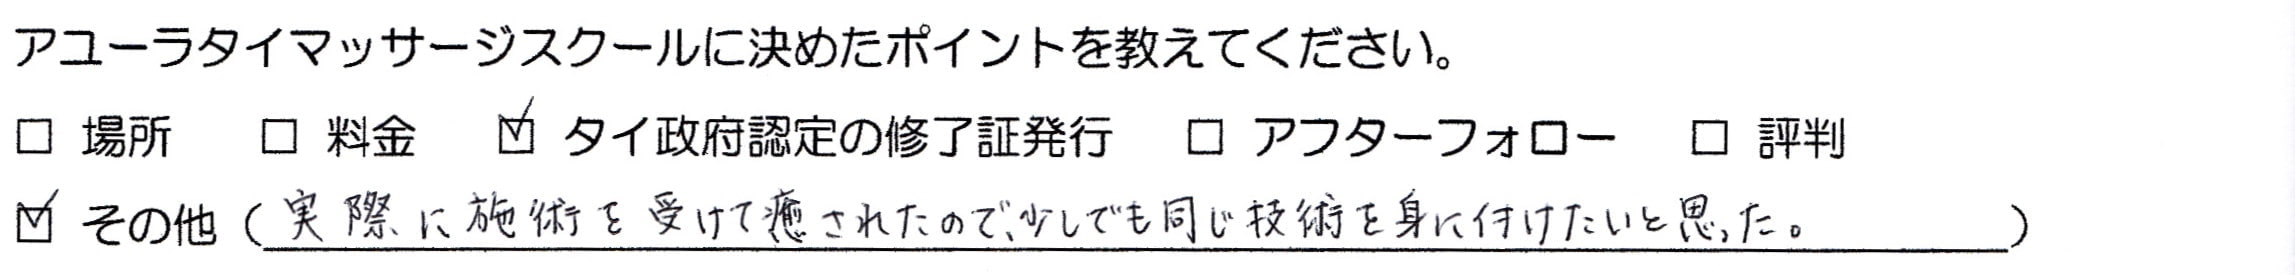 アユーラタイマッサージスクールに決めたポイントを教えてください。
☐ 場所 ☐ 料金 ☑ タイ政府認定の修了証発行 ☐ アフターフォロー ☐ 評判
☑ その他（実際に施術を受けて癒されたので、少しでも同じ技術を身に付けたいと思った。）